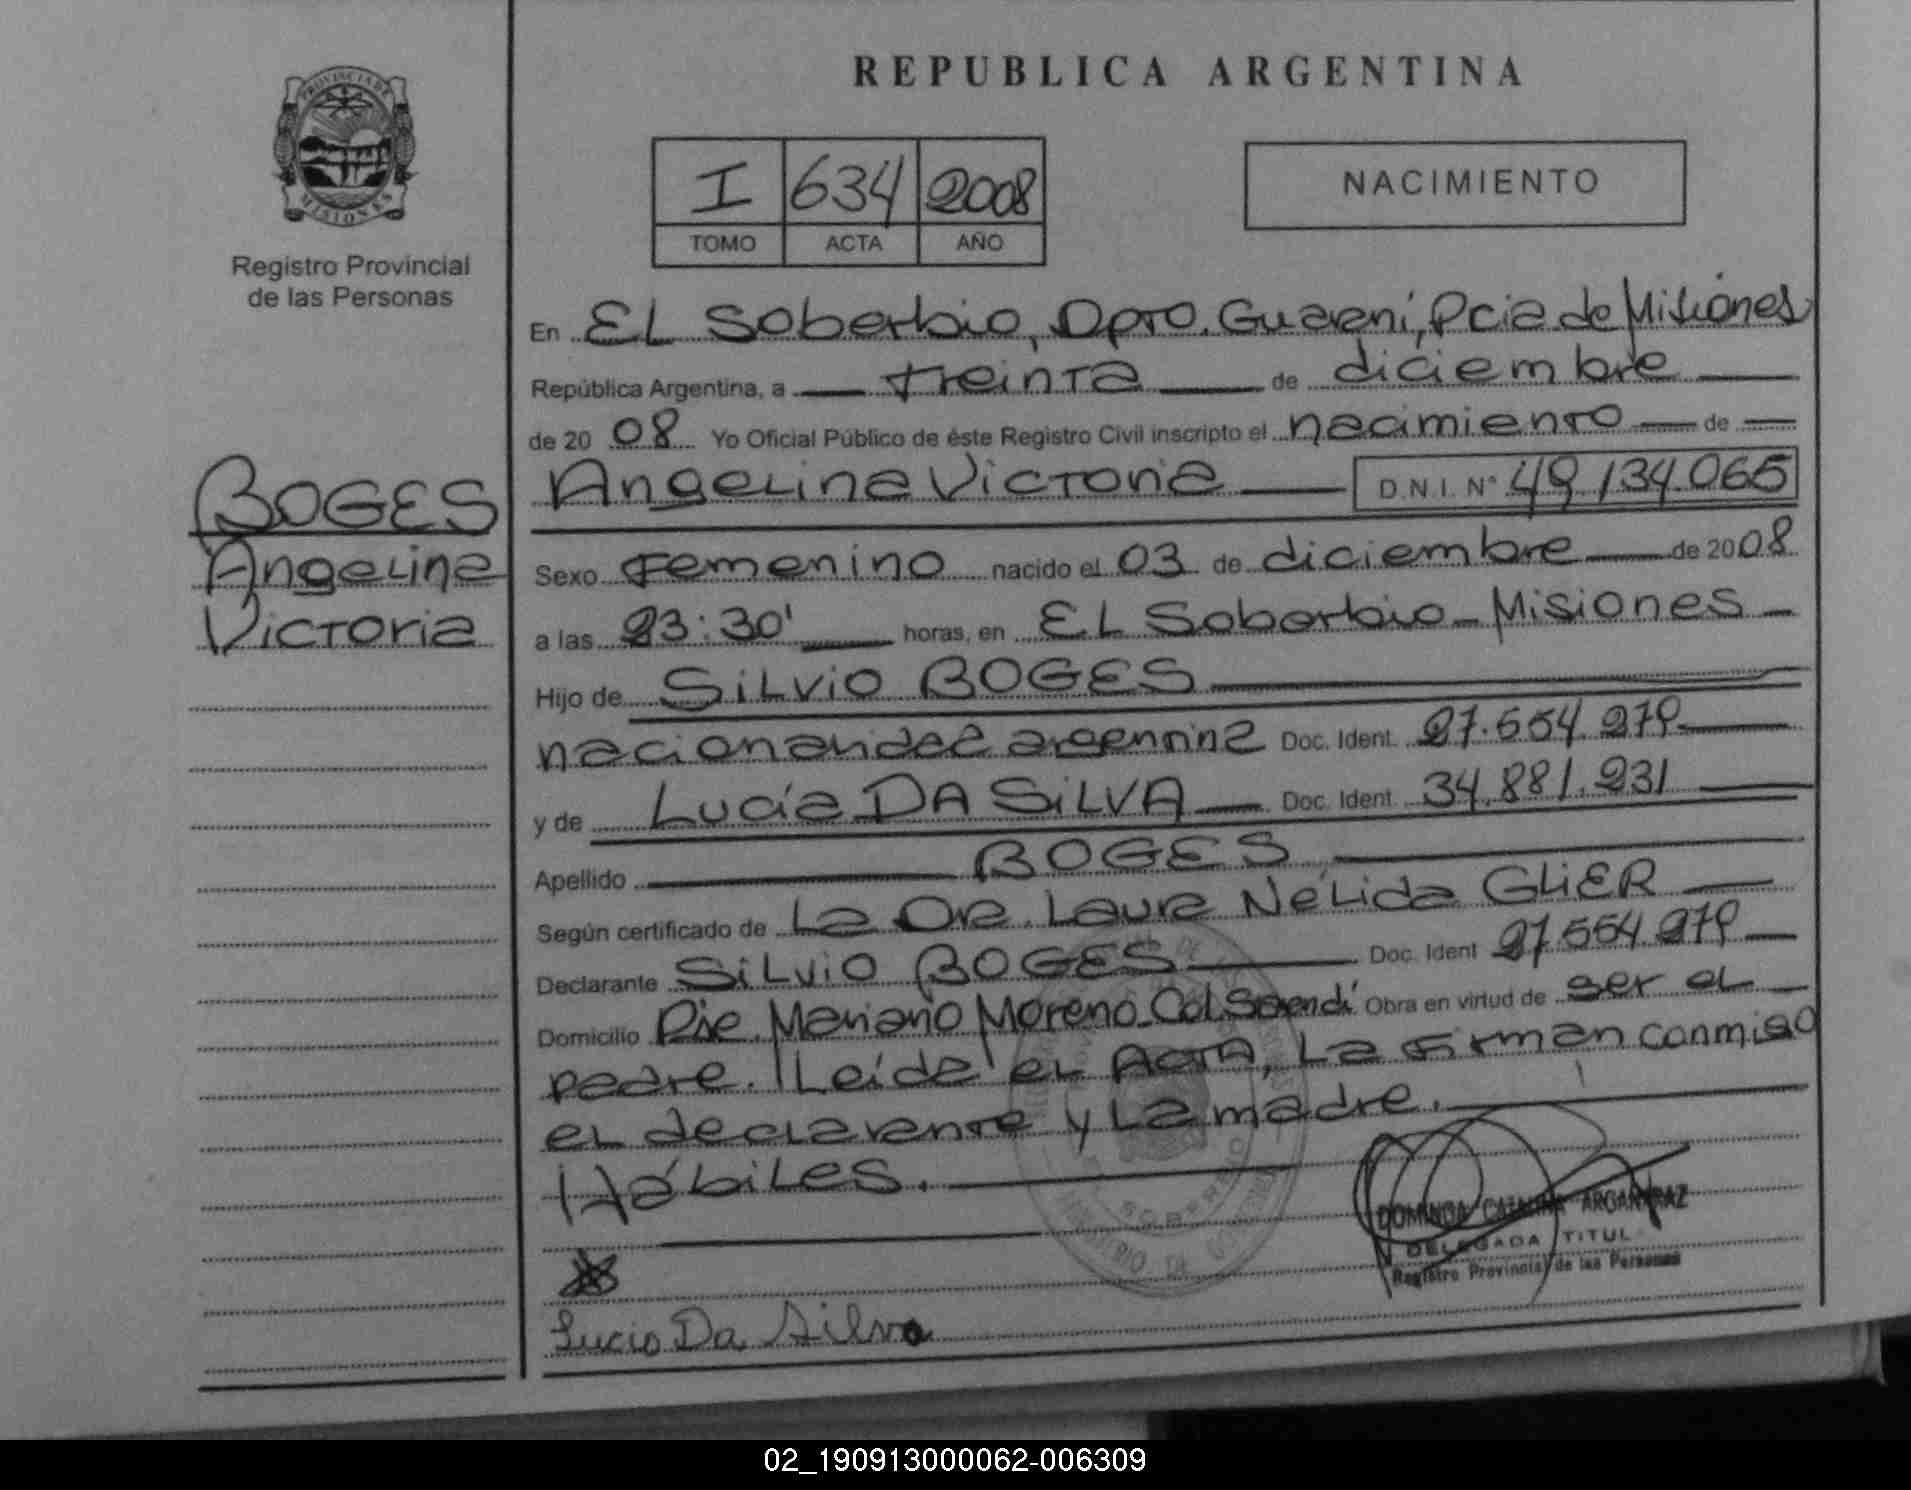 REPUBLICA ARGENTINA
PROVINCIA DE
MISIONES
Registro Provincial
de las Personas
I 634 2008
TOMO ACTA AÑO
NACIMIENTO
BOGES
Angelina
Victoria
En EL Soberbio, Dpto. Guaraní, Pcia de Misiones
República Argentina, a treinta de diciembre
de 20 08 Yo Oficial Público de éste Registro Civil inscripto el nacimiento de
Angelina Victoria D.N.I. N° 49.134.065
Sexo Femenino nacido el 03 de diciembre de 2008
a las 23:30' horas, en EL Soberbio - Misiones
Hijo de Silvio BOGES
nacionalidad argentina Doc. Ident. 27.554.279
y de Lucía DA SILVA Doc. Ident. 34.881.231
Apellido BOGES
Según certificado de La Dra. Laura Nélida GLIER
Declarante Silvio BOGES Doc. Ident 27.554.279
Domicilio Pje. Mariano Moreno Col. Saendi Obra en virtud de ser el
padre. Leída el Acta, La firman conmigo
el declarante y La madre.
Hábiles.
SOBERBIO
MINISTERIO DE GOBIERNO
DOMINGA CATALINA ARGANARAZ
DELEGADA TITUL
Registro Provincial de las Personas
Lucia Da Silva
02_190913000062-006309